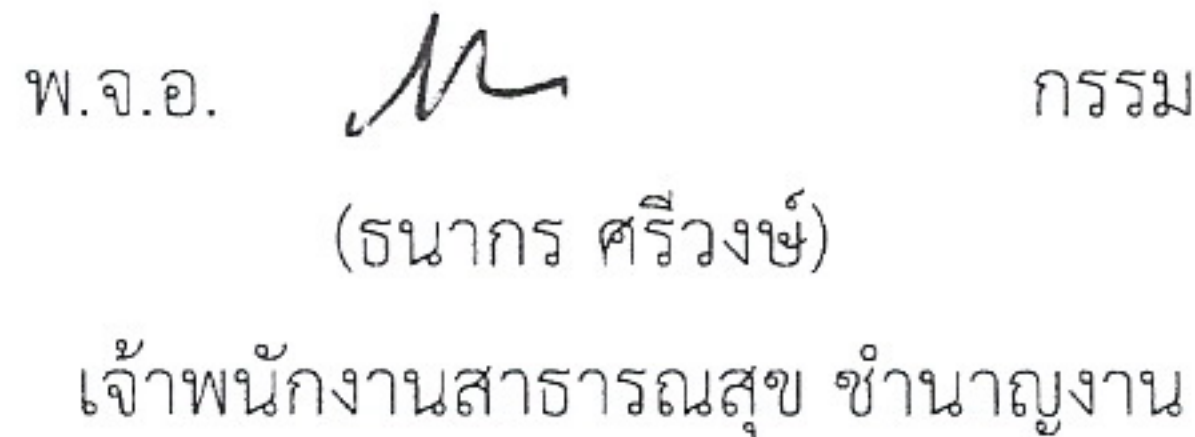 พ.จ.อ. กรรม
(ธนากร ศรีวงษ์)
เจ้าพนักงานสาธารณสุข ชำนาญงาน